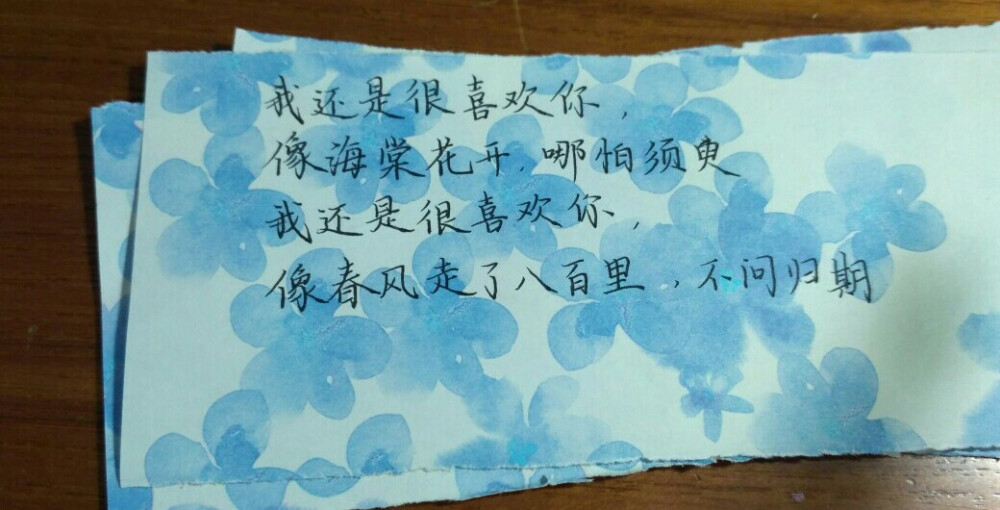 我还是很喜欢你，
像海棠花开，哪怕须臾
我还是很喜欢你，
像春风走了八百里，不问归期